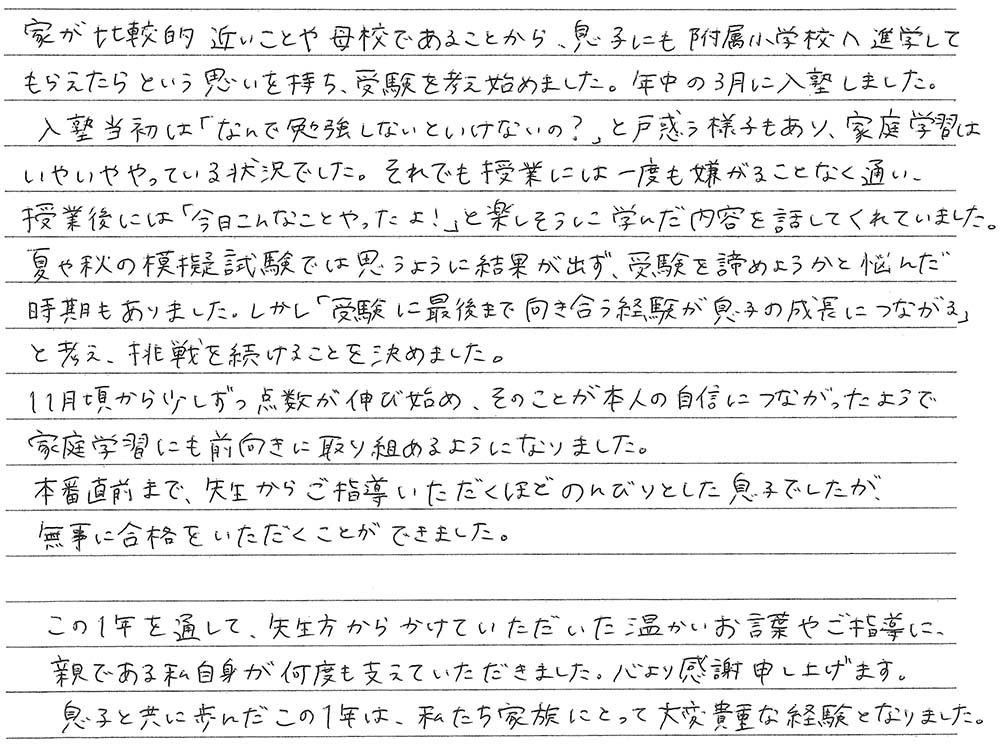 家が比較的近いことや母校であることから、息子にも附属小学校へ進学して
もらえたらという思いを持ち、受験を考え始めました。年中の3月に入塾しました。
入塾当初は「なんで勉強しないといけないの?」と戸惑う様子もあり、家庭学習は
いやいややっている状況でした。それでも授業には一度も嫌がることなく通い、
授業後には「今日こんなことやったよ!」と楽しそうに学んだ内容を話してくれていました。
夏や秋の模擬試験では思うように結果が出ず、受験を諦めようかと悩んだ
時期もありました。しかし「受験に最後まで向き合う経験が息子の成長につながる」
と考え、挑戦を続けることを決めました。
11月頃から少しずつ点数が伸び始め、そのことが本人の自信につながったようで
家庭学習にも前向きに取り組めるようになりました。
本番直前まで、先生からご指導いただくほどのんびりとした息子でしたが、
無事に合格をいただくことができました。
この1年を通して、先生方からかけていただいた温かいお言葉やご指導に、
親である私自身が何度も支えていただきました。心より感謝申し上げます。
息子と共に歩んだこの1年は、私たち家族にとって大変貴重な経験となりました。